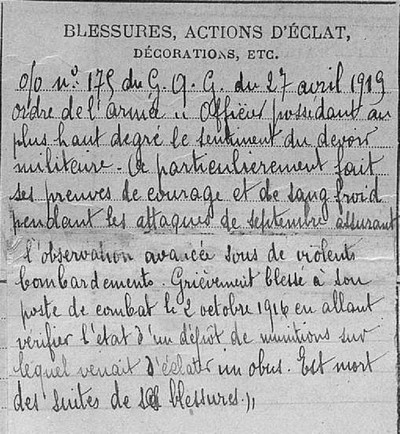 BLESSURES, ACTIONS D'ÉCLAT,
DÉCORATIONS, ETC.
o/o nº 175 du G. Q. G. du 27 avril 1919
ordre de l'armée " Officier possédant au
plus haut degré le sentiment du devoir
militaire. a particulièrement fait
ses preuves de courage et de sang froid
pendant les attaques de septembre assurant
l'observation avancée sous de violents
bombardements. Grièvement blessé à son
poste de combat le 2 octobre 1916 en allant
vérifier l'état d'un dépôt de munitions sur
lequel venait d'éclater un obus. Est mort
des suites de ses blessures.),